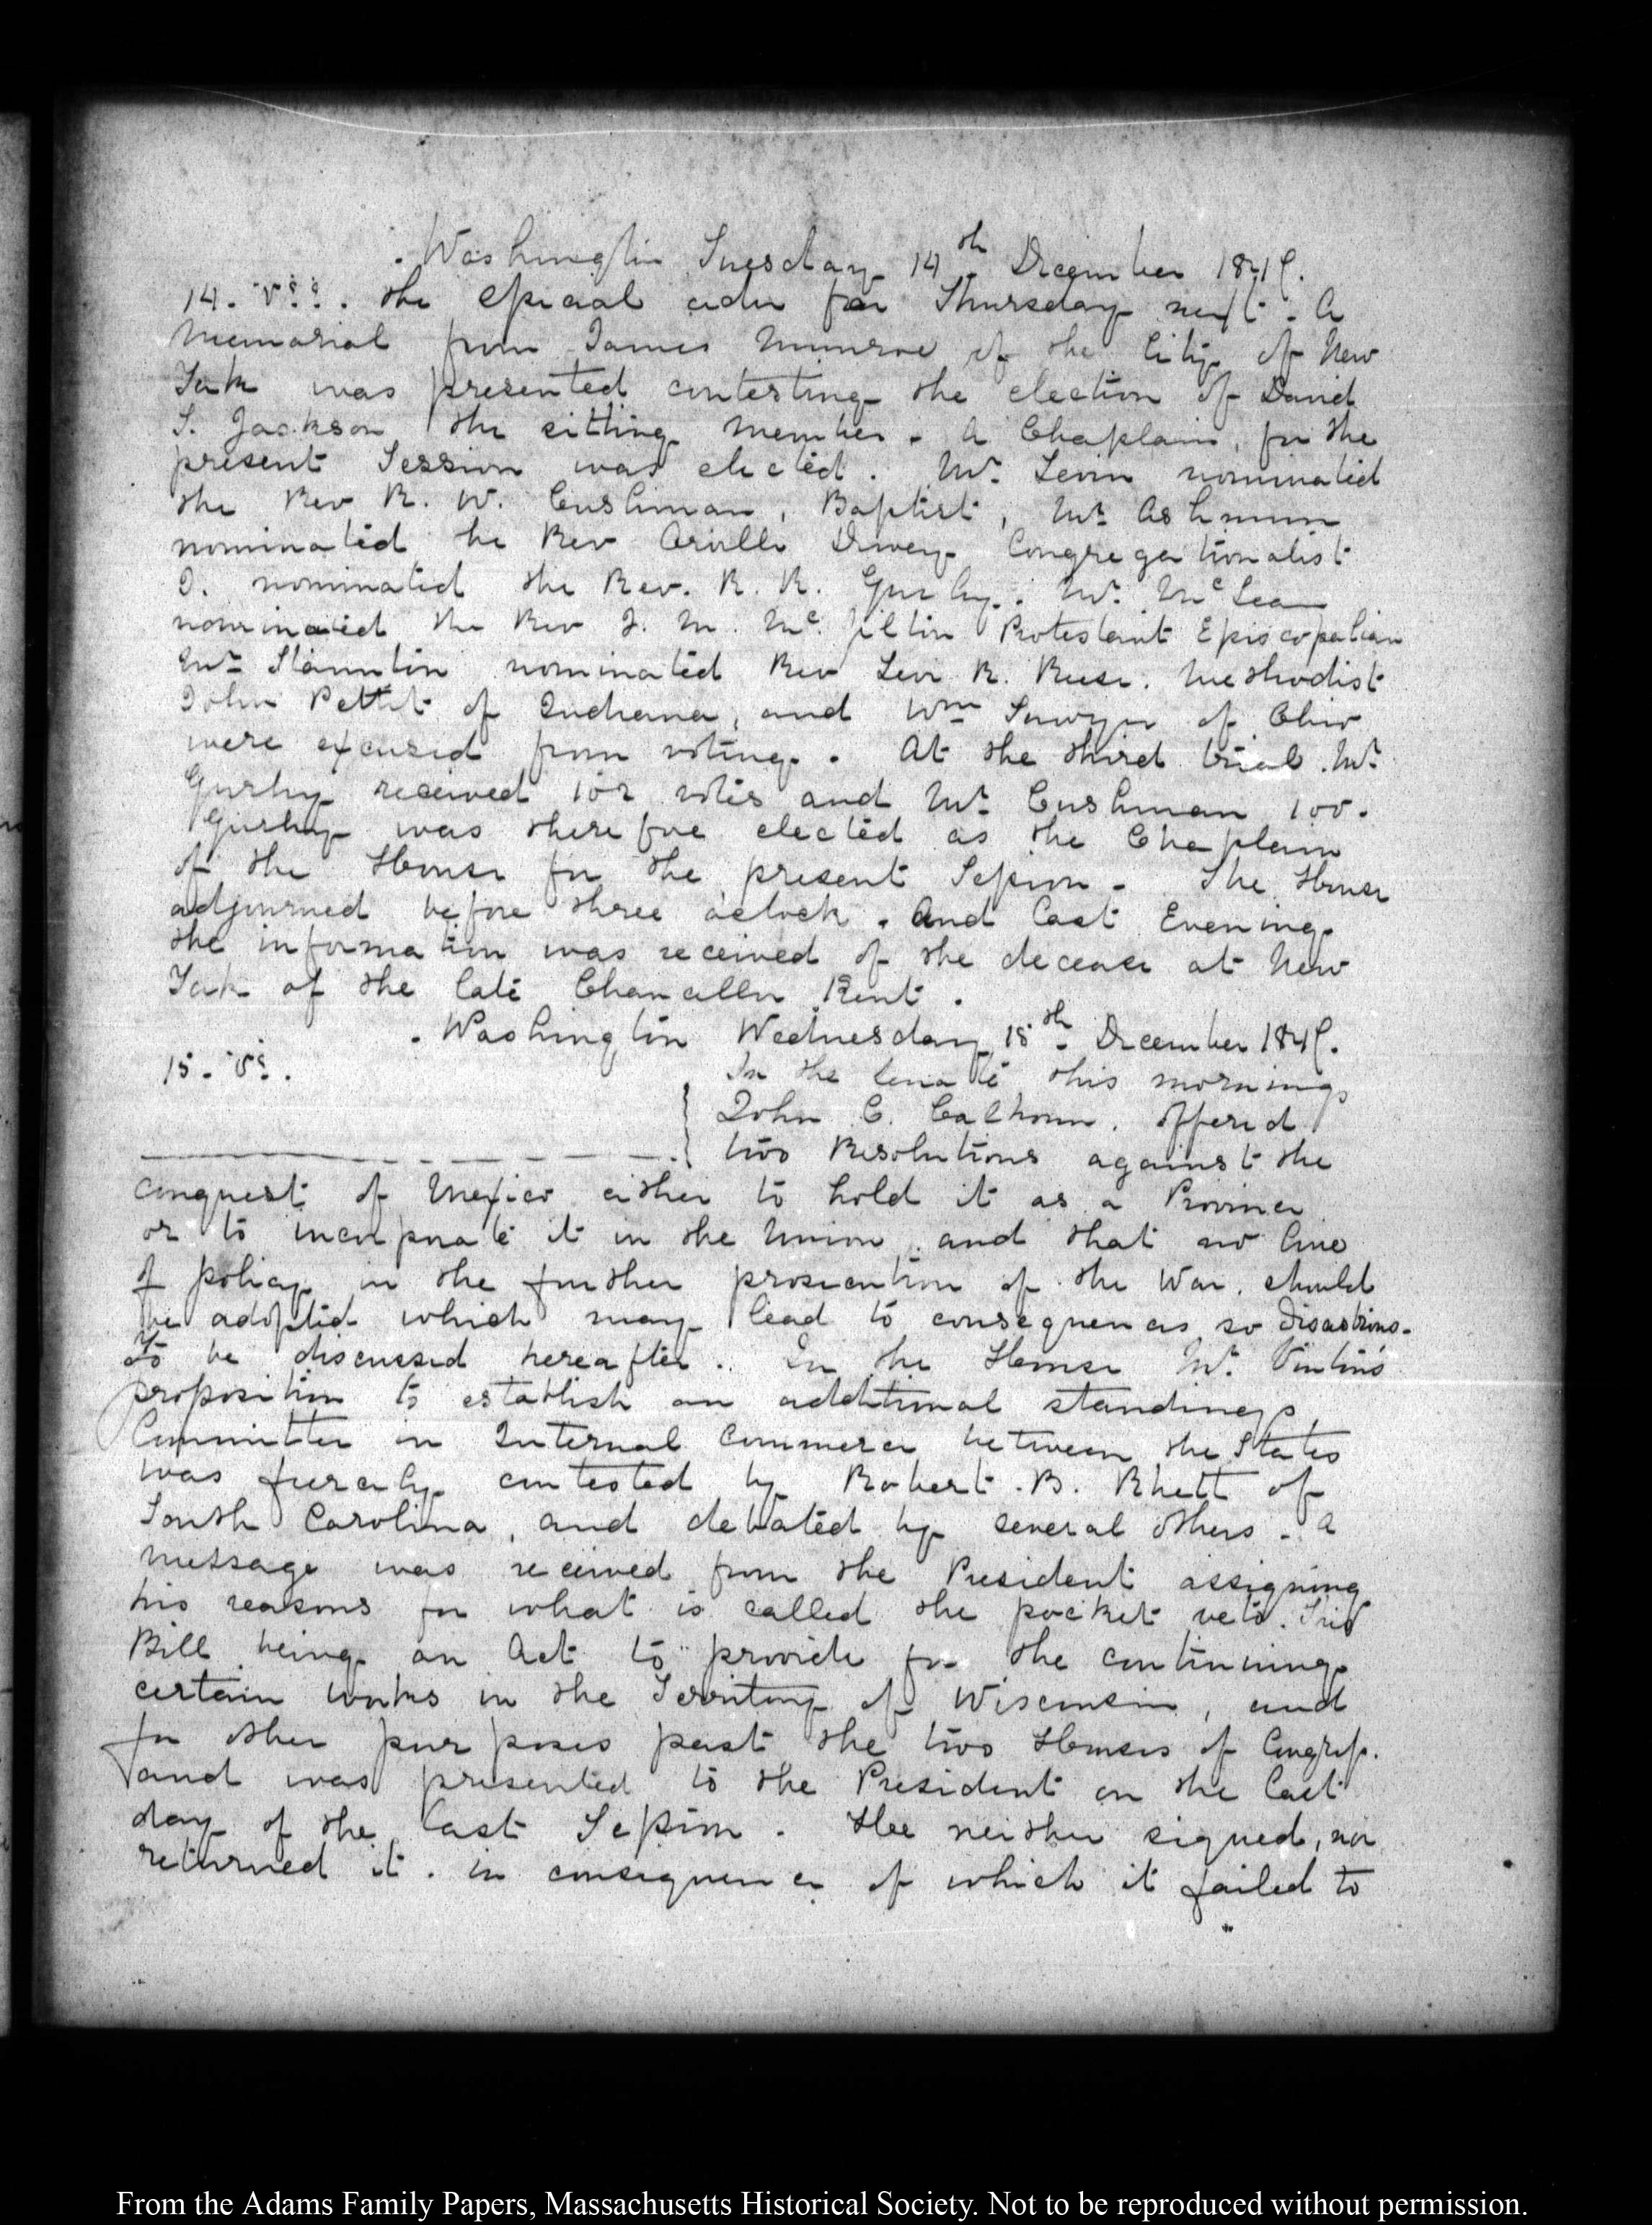 Washington Tuesday 14th December 1847.
14. V. the special order for Thursday next. A
Memorial from James Munroe of the City of New
York was presented contesting the election of David
S. Jackson the sitting member. A Chaplain, for the
present Session was elected. Mr. Levin nominated
the Rev R. W. Cushman, Baptist, Mr. Ashmun
nominated the Rev Orville Dewey Congregationalist
I. nominated the Rev. R. R. Gurley. Mr. McLean
nominated the Rev J. M. Mc. Jilton Protestant Episcopalian
Mr. Staunton nominated Rev Levi R. Reese. Methodist
John Pettit of Indiana, and Wm Sawyer of Ohio
were excused from voting. At the third trial Mr.
Gurley received 102 votes and Mr. Cushman 100.
Gurley was therefore elected as the Chaplain
of the House for the present Session. The House
adjourned before three o'clock. And last Evening
the information was received of the decease at New
York of the late Chancellor Kent.
Washington Wednesday 15th December 1847.
15. V. In the Senate this morning
John C. Calhoun. offered
two Resolutions against the
conquest of Mexico either to hold it as a Province
or to incorporate it in the Union, and that no line
of policy in the further prosecution of the War, should
be adopted which may lead to consequences so disastrous.
To be discussed hereafter. In the House Mr. Vinton's
proposition to establish an additional standing
Committee on Internal Commerce between the States
was fiercely contested by Robert B. Rhett of
South Carolina, and debated by several others. A
message was received from the President assigning
his reasons for what is called the pocket veto. This
Bill being an Act to provide for the continuing
certain works in the Territory of Wisconsin, and
for other purposes past the two Houses of Congress.
and was presented to the President on the last
day of the last Session. He neither signed, nor
returned it. in consequence of which it failed to
From the Adams Family Papers, Massachusetts Historical Society. Not to be reproduced without permission.